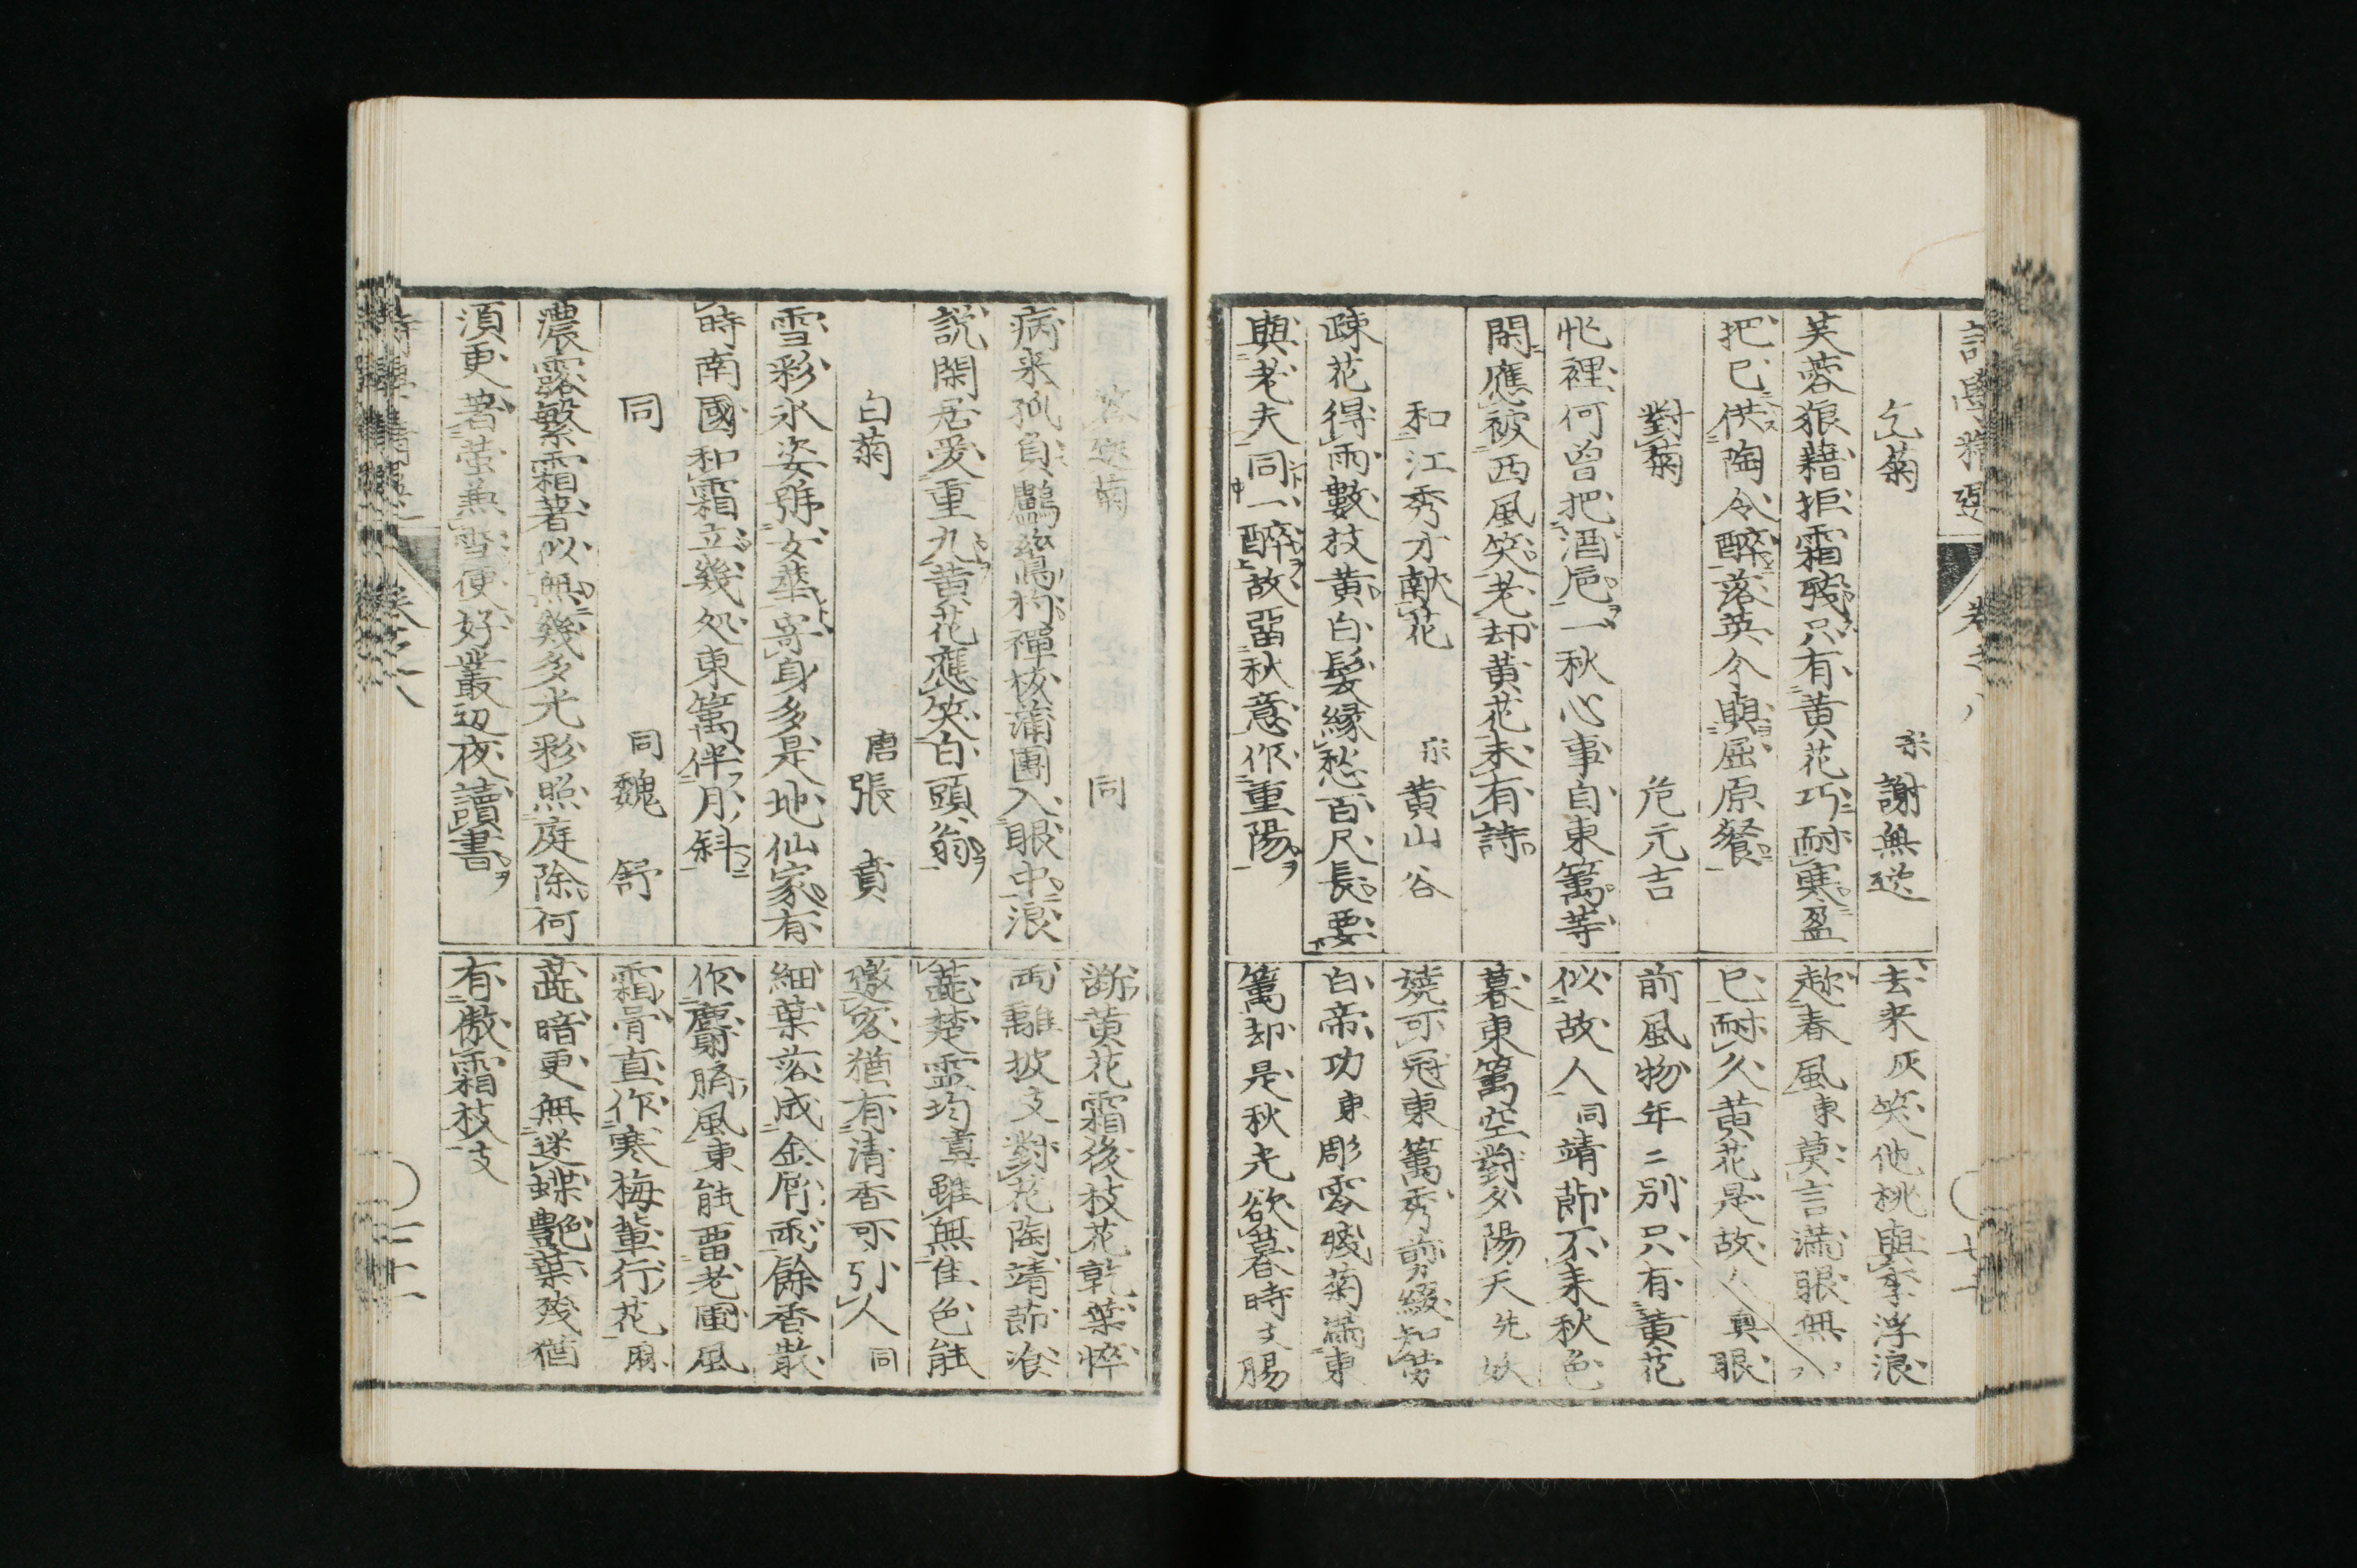 乞菊
宋 謝無逸
芙蓉狼藉拒霜殘只有黄花巧耐寒盈
把已供陶令醉落英今與屈原餐
對菊
危元吉
忙裡何曽把酒巵一秋心事自東篱等
閑應被西風笑老却黄花未有詩
和江秀才献花
宋 黄山谷
疎花得雨數枝黄白髮縁愁百尺長要
與老夫同一醉故畱秋意作重陽
去来 灰笑他桃與李浮浪
趂春風 東莫言滿眼無
已耐久黄花是故人 真眼
前風物年〻別只有黄花
似故人 同靖節不来秋色
暮東篱空對夕陽天 先妖
嬈可冠東篱秀剪綴知勞
白帝功 東彫零殘菊滿東
篱却是秋光欲暮時 支腸
菊
同
病来孤負鸕鷀杓禪板蒲團入眼中浪
説閑居愛重九黄花應笑白頭翁
白菊
唐 張賁
雪彩氷姿号女華寄身多是地仙家有
時南國和霜立幾処東篱伴月斜
同
同 魏舒
濃露繁霜著似無幾多光彩照庭除何
須更著蛍兼雪便好叢辺夜讀書
黄花霜後枝花乾葉悴
雨離披 支對花陶靖節飡
蘂楚霊均 真雖無佳色能
邀客猶有清香可引人 同
細葉落成金屑雨餘香散
作麝臍風 東能畱老圃風
霜骨直作寒梅輩行花 麻
蘂暗更無迷蝶艶葉殘猶
有傲霜枝 支